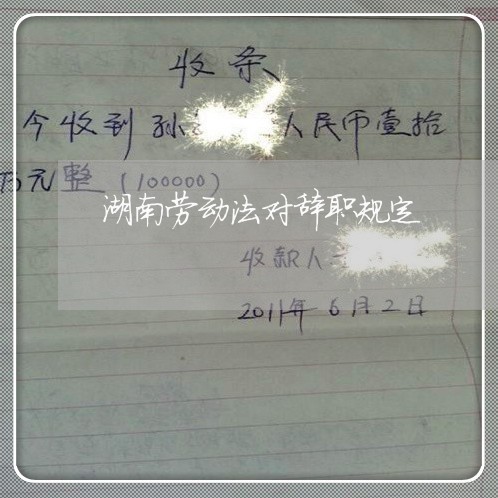 收条
今收到孙 人民币壹拾
万元整(100000)
湖南劳动法对辞职规定
收款人
2011年6月2日